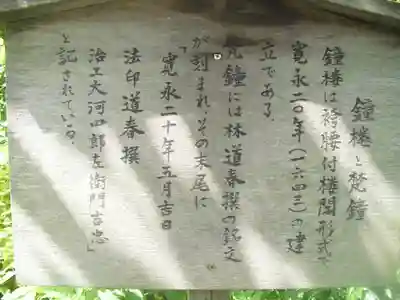 鐘楼と梵鐘
鐘楼は袴腰付楼閣形式で
寛永二〇年(一六四三)の建
立である。
梵鐘には林道春撰の銘文
が刻まれ、その末尾に
「寛永二十年五月吉日
法印道春撰
治工大河四郎左衛門吉忠」
と記されている。